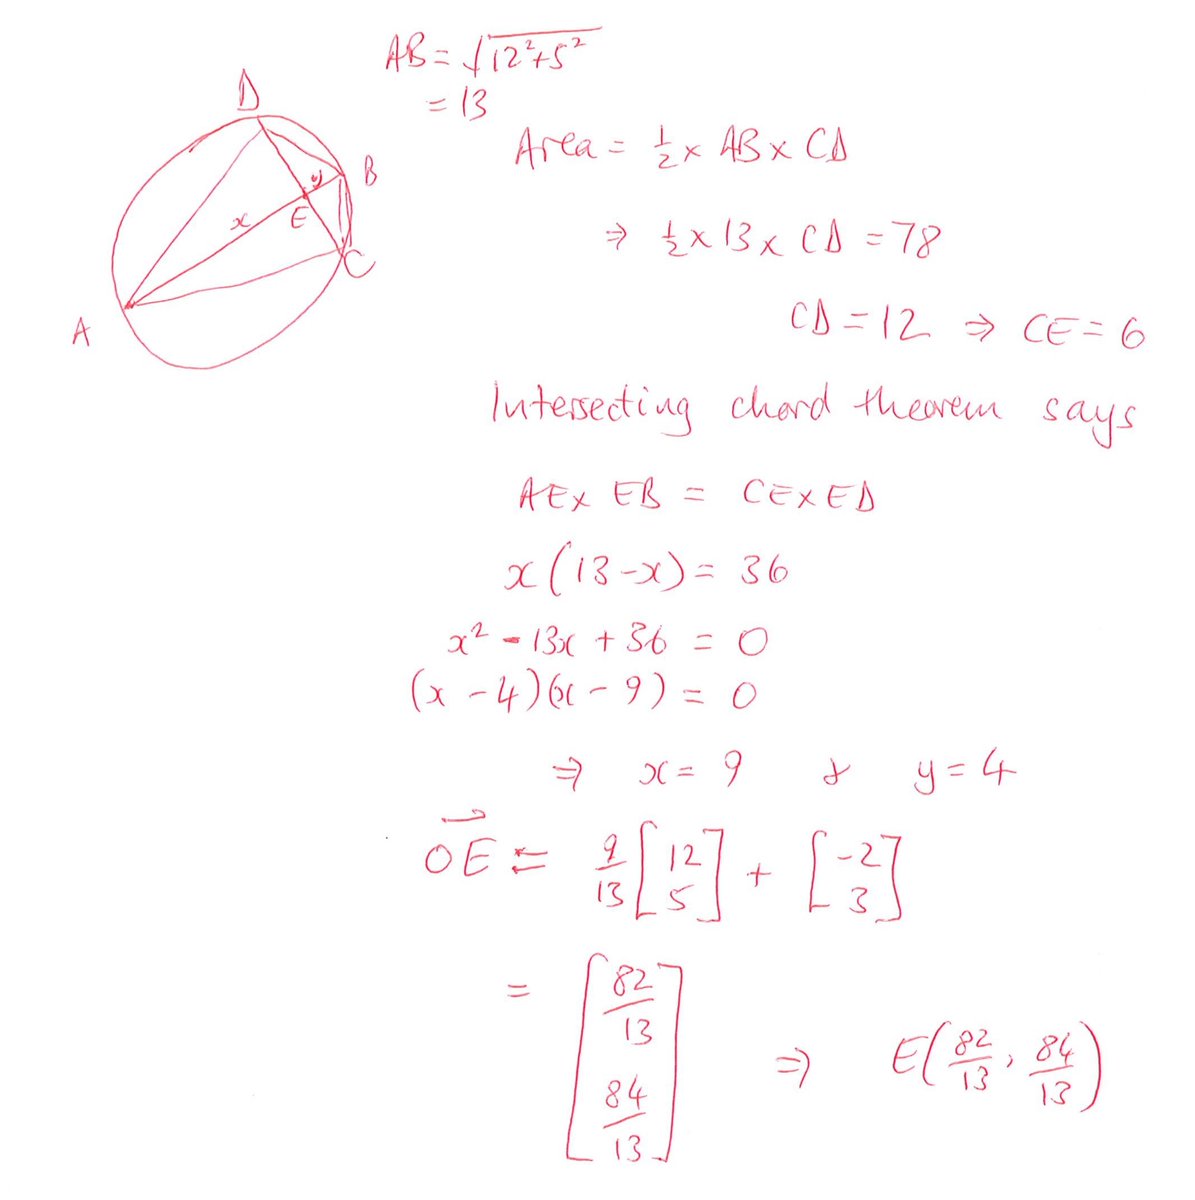 AB = √12²+5²
= 13
D
B
y
E
x
C
A
Area = 1/2 x AB x CD
⇒ 1/2 x 13 x CD = 78
CD = 12 ⇒ CE = 6
Intersecting chord theorem says
AE x EB = CE x ED
x(13-x) = 36
x² - 13x + 36 = 0
(x - 4)(x - 9) = 0
⇒ x = 9 & y = 4
OE = 9/13 [12 5] + [-2 3]
= [82/13 84/13] ⇒ E(82/13, 84/13)